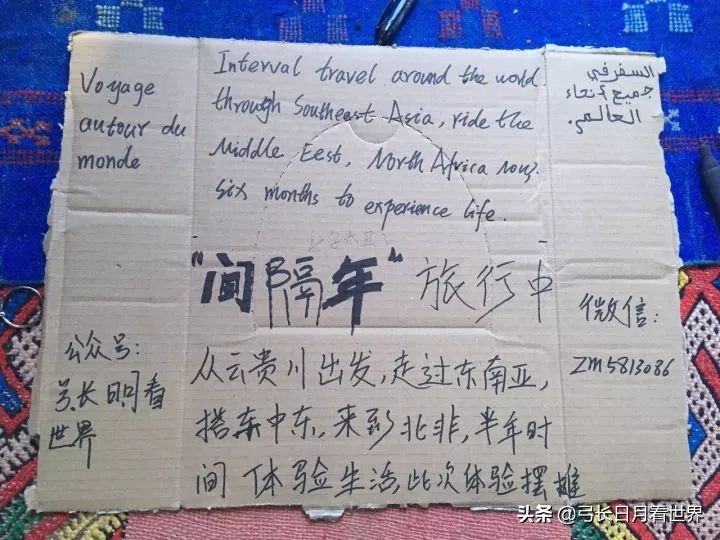 Voyage
autour du
monde
Interval travel around the world
through Southeast Asia, ride the
Middle Eest, North Africa
six months to experience life.
السفر في
جميع أنحاء
العالمي.
"间隔年" 旅行中
从云贵川出发,走过东南亚,
搭车中东,来到北非,半年时
间 体验生活,此次体验摆摊
公众号:
弓长日月看
世界
微信:
ZM5813086
头条 @弓长日月看世界